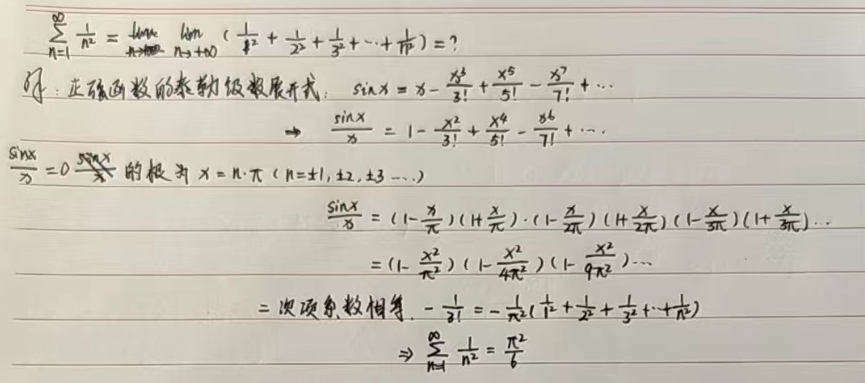 ∑_{n=1}^{∞} 1/n² = lim_{n→+∞} (1/1² + 1/2² + 1/3² + ⋯ + 1/n²) = ?
解：正弦函数的泰勒级数展开式： sinx = x - x³/3! + x⁵/5! - x⁷/7! + ⋯
⇒ sinx/x = 1 - x²/3! + x⁴/5! - x⁶/7! + ⋯
sinx/x = 0 的根为 x = n·π (n = ±1, ±2, ±3 ⋯)
sinx/x = (1 - x/π)(1 + x/π)·(1 - x/2π)(1 + x/2π)(1 - x/3π)(1 + x/3π)⋯
= (1 - x²/π²)(1 - x²/4π²)(1 - x²/9π²)⋯
二次项系数相等. -1/3! = -1/π²(1/1² + 1/2² + 1/3² + ⋯ + 1/n²)
⇒ ∑_{n=1}^{∞} 1/n² = π²/6